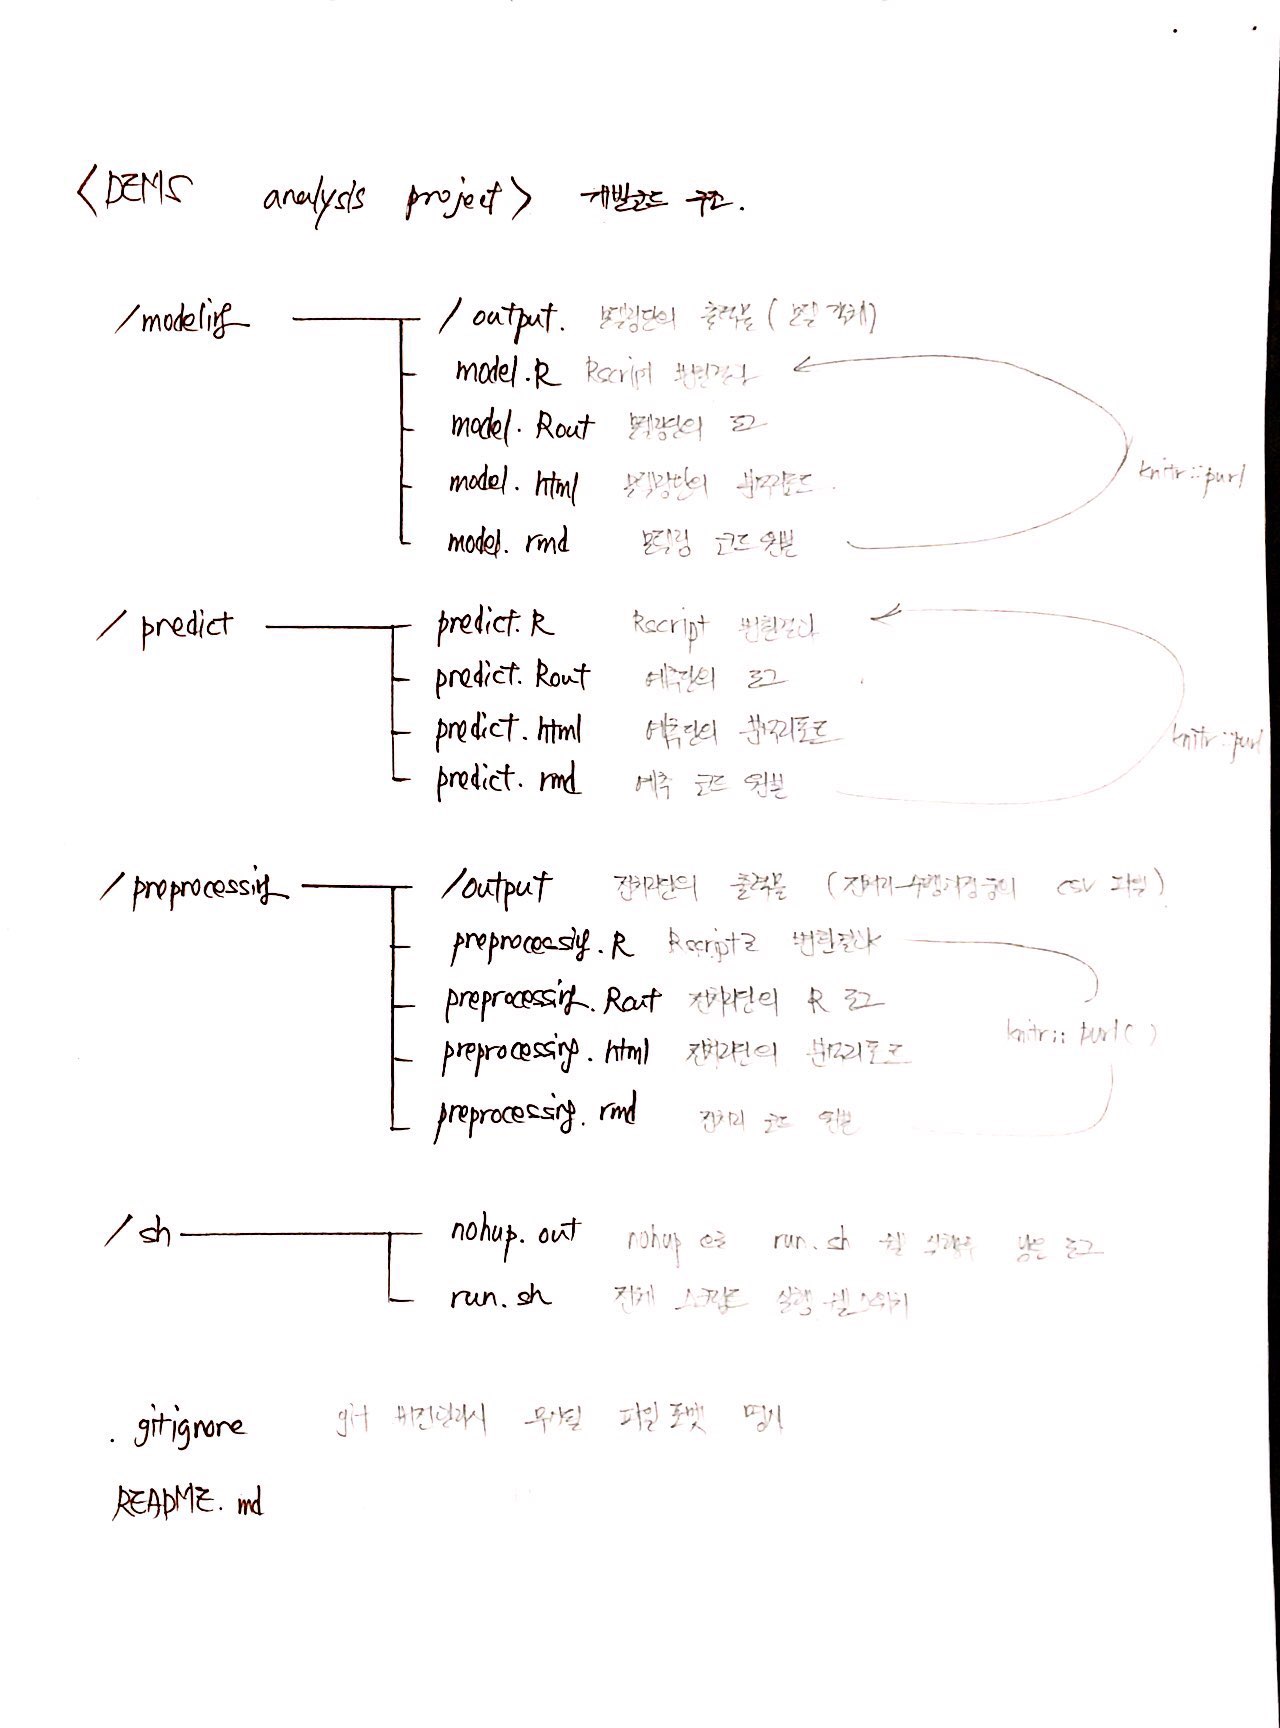 <DEMS analysis project> 개발코드 구조.
/modeling /output. 모델링단의 출력물 (모델 객체)
model.R Rscript 변환결과
model.Rout 모델링단의 로그
model.html 모델링단의 분석리포트.
knitr::purl
model.rmd 모델링 코드 원본
/predict predict.R Rscript 변환결과
predict.Rout 예측단의 로그
predict.html 예측단의 분석리포트
knitr::purl
predict.rmd 예측 코드 원본
/preprocessing /output 전처리단의 출력물 (전처리 수행과정중의 csv 파일)
preprocessing.R Rscript로 변환결과
preprocessing.Rout 전처리단의 R 로그
knitr::purl()
preprocessing.html 전처리단의 분석리포트
preprocessing.rmd 전처리 코드 원본
/sh nohup.out nohup으로 run.sh 쉘 실행후 남은 로그
run.sh 전체 스크립트 실행 쉘
.gitignore git 버전관리시 무시될 파일포맷 명시
README.md